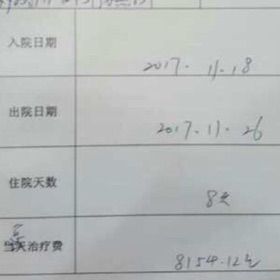 入院日期
2017.11.18
出院日期
2017.11.26
住院天数
8天
治疗费
8154.12元